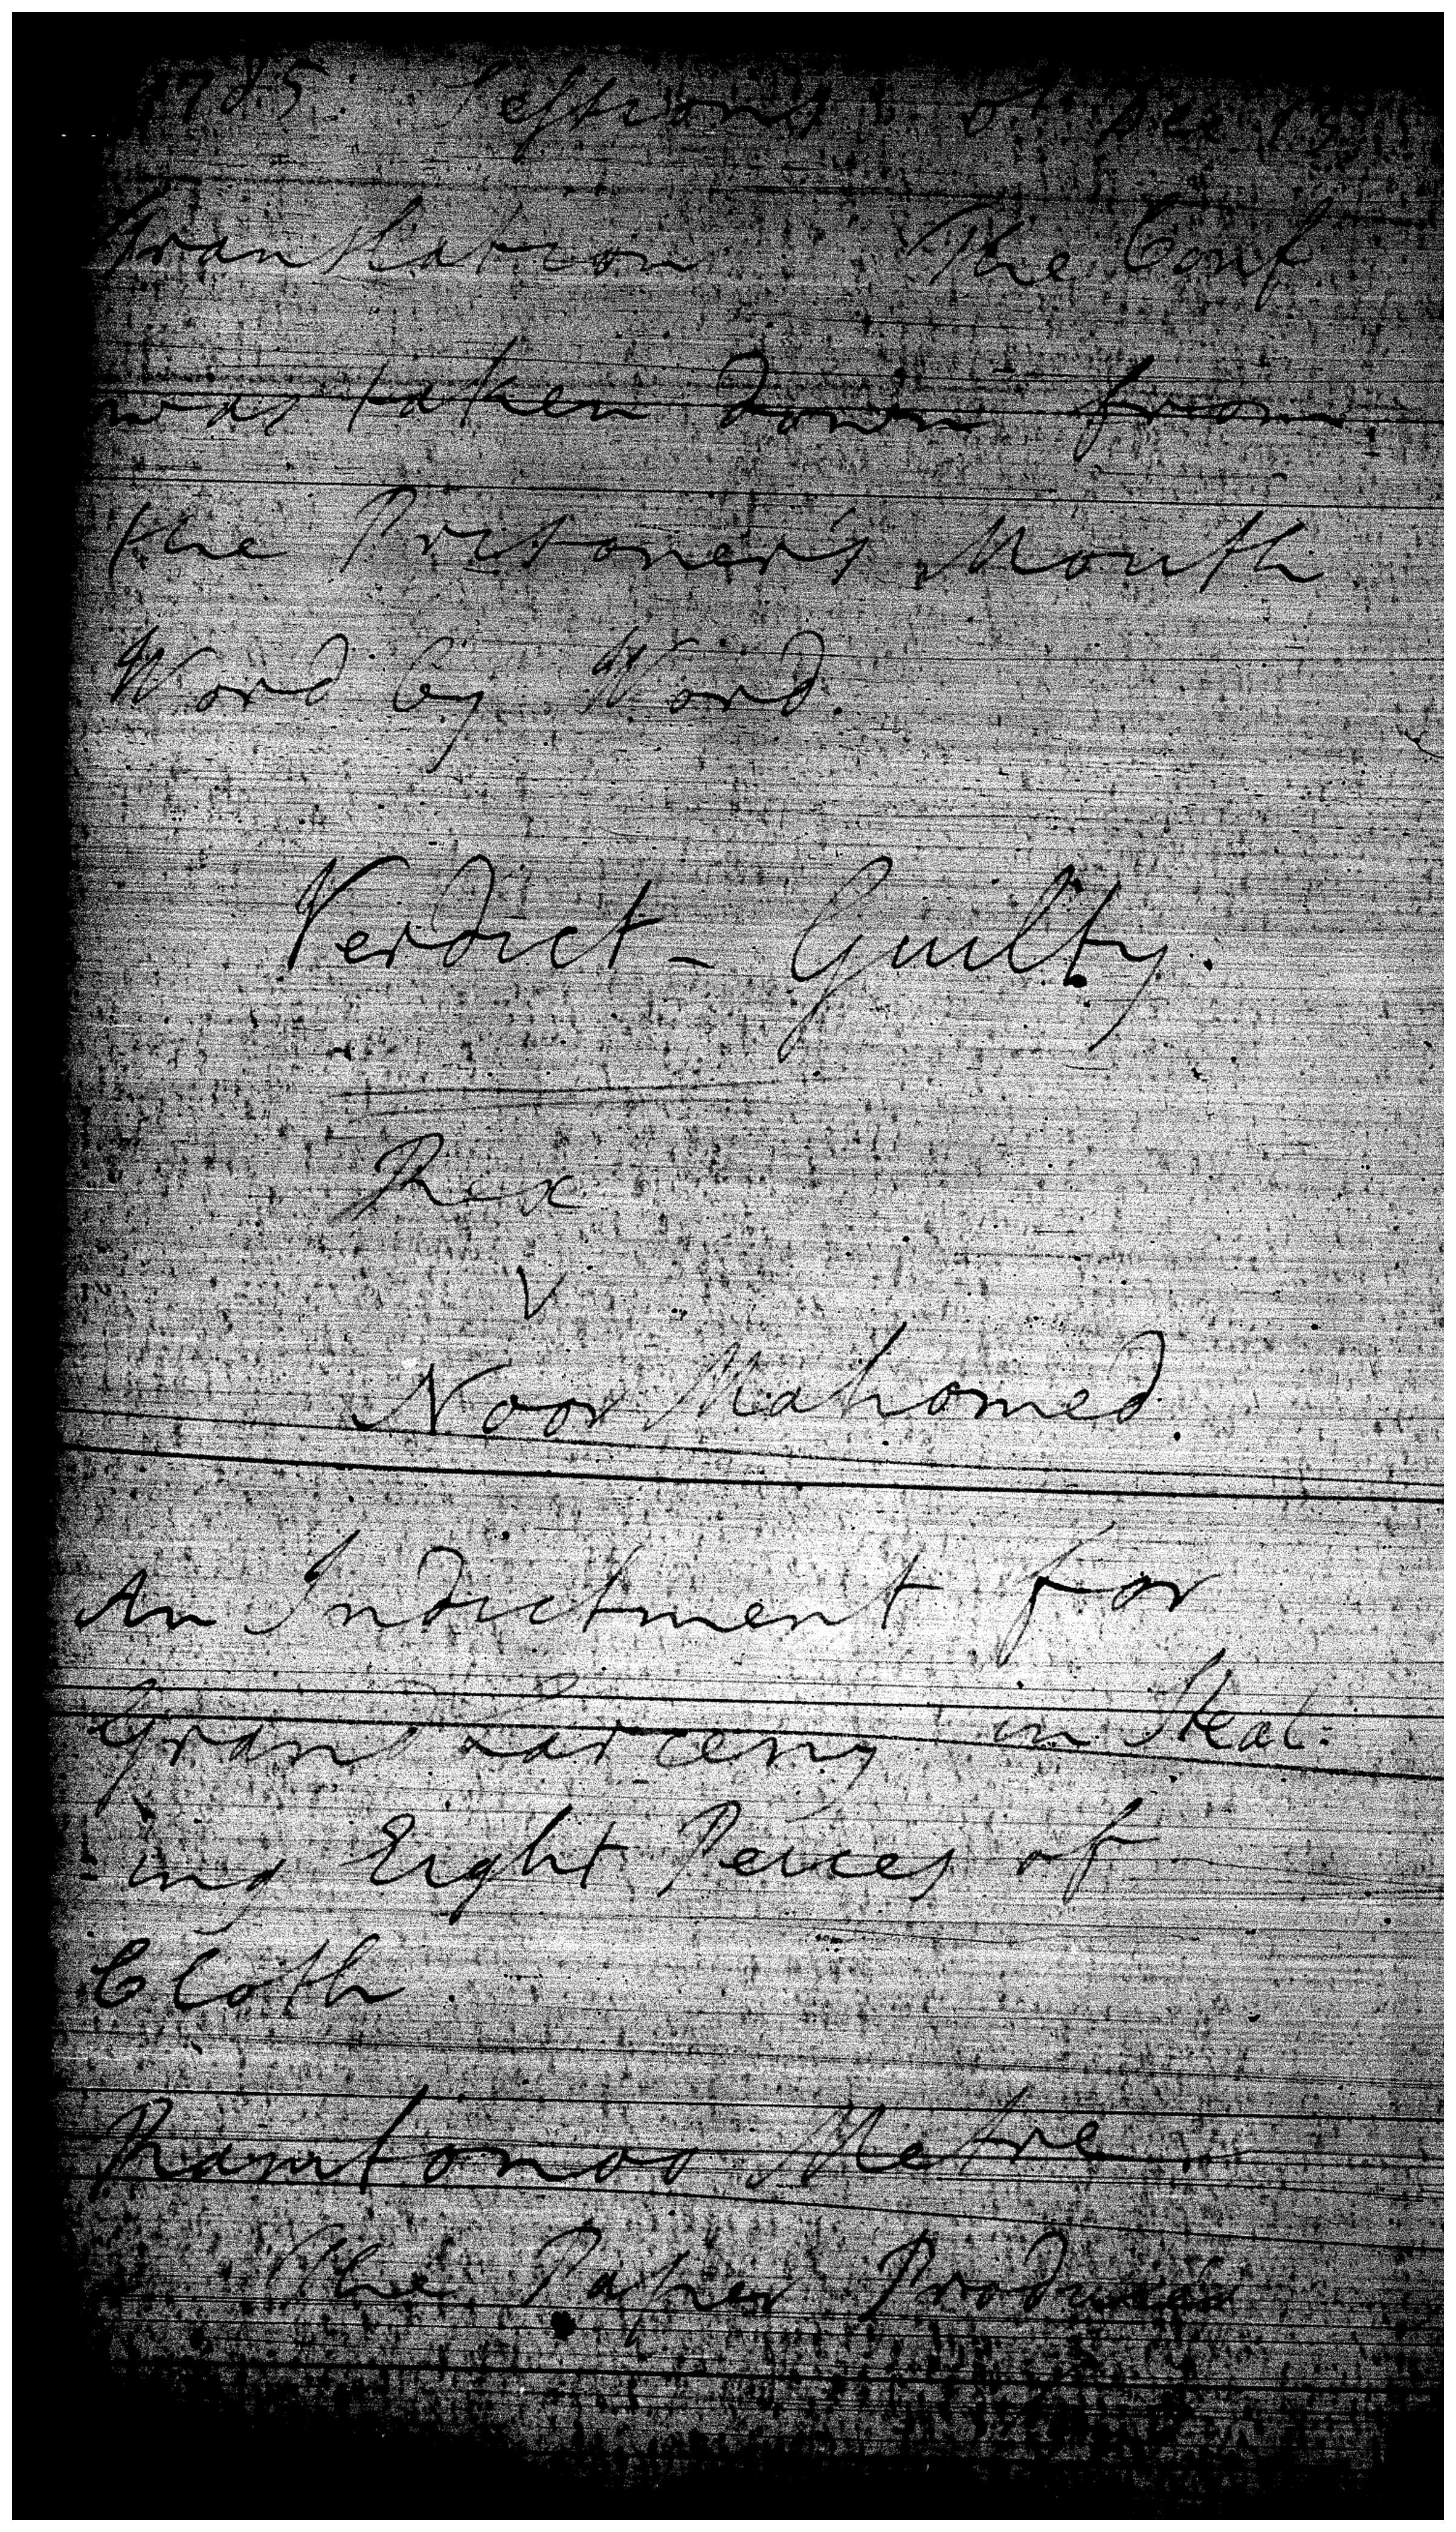 1785. Sessions of Dec 15
Translation The Conf
was taken down from
the Prisoner's Mouth
Word by Word.
Verdict - Guilty.
Rex
V
Noor Mahomed.
An Indictment for
Grand Larceny in Steal.
-ing Eight Peices of
Cloth
Ramtonoo Metre
The Paper Produced